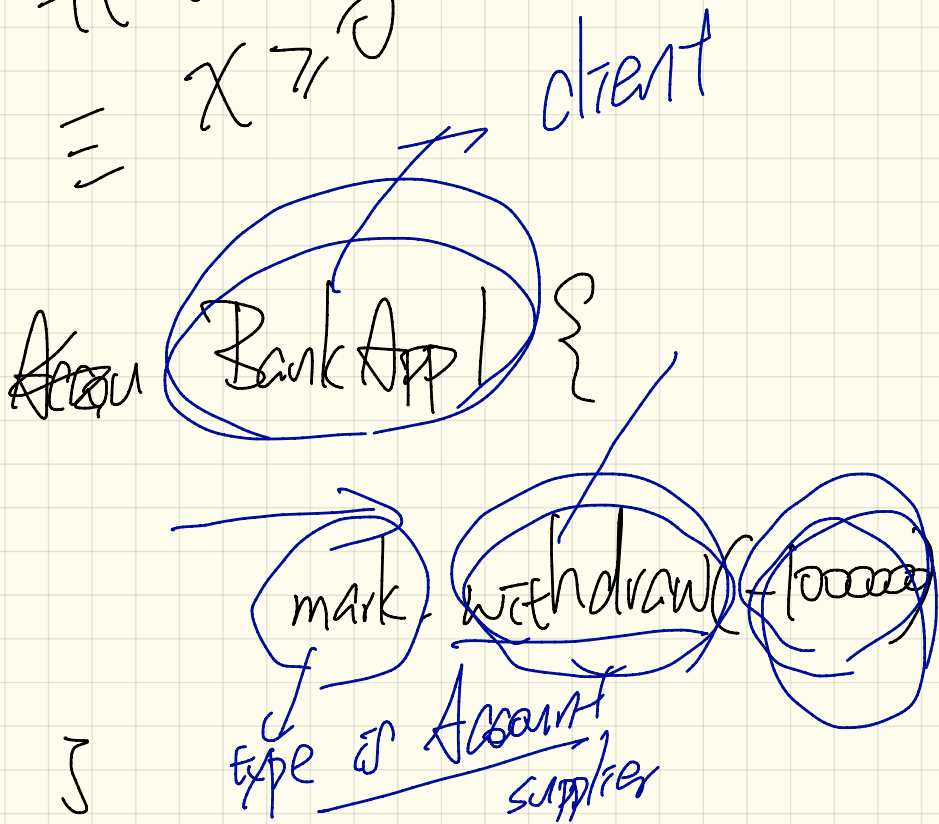 x ≥ 0
≡
client
BankApp1 {
mark.withdraw(-1000000)
type is Account
supplier
}